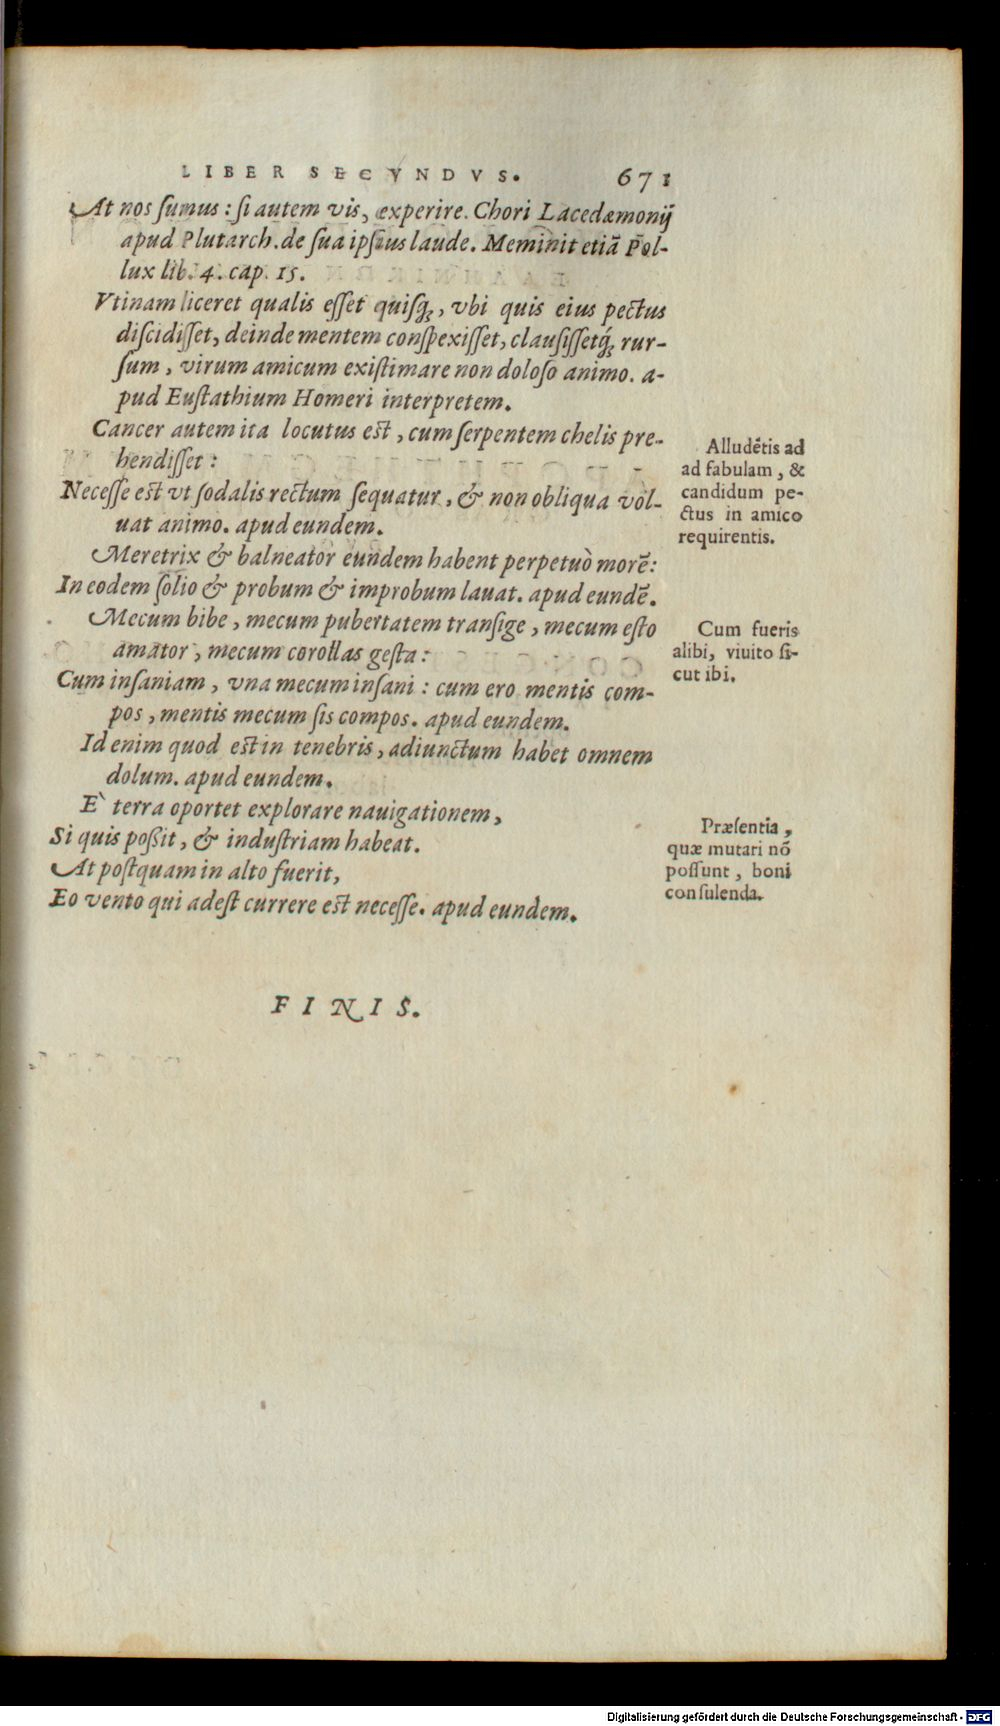 LIBER SECVNDVS. 671
At nos ſumus: ſi autem vis, æxperire. Chori Lacedæmonij
apud Plutarch. de ſua ipſius laude. Meminit etiã Pol-
lux lib. 4. cap. 15.
Vtinam liceret qualis eſſet quiſq;, vbi quis eius pectus
diſcidiſſet, deinde mentem conſpexiſſet, clauſiſſetq́; rur-
ſum, virum amicum exiſtimare non doloſo animo. a-
pud Euſtathium Homeri interpretem.
Cancer autem ita locutus eſt, cum ſerpentem chelis pre-
hendiſſet:
Neceſſe eſt vt ſodalis rectum ſequatur, & non obliqua vol-
uat animo. apud eundem.
Alludẽtis ad
ad fabulam, &
candidum pe-
ctus in amico
requirentis.
Meretrix & balneator eundem habent perpetuò morẽ:
In eodem ſolio & probum & improbum lauat. apud eundẽ.
Mecum bibe, mecum pubertatem tranſige, mecum eſto
amator, mecum corollas geſta:
Cum inſaniam, vna mecum inſani: cum ero mentis com-
pos, mentis mecum ſis compos. apud eundem.
Cum fueris
alibi, viuito ſi-
cut ibi.
Id enim quod eſt in tenebris, adiunctum habet omnem
dolum. apud eundem.
E` terra oportet explorare nauigationem,
Si quis poßit, & induſtriam habeat.
At poſtquam in alto fuerit,
Eo vento qui adeſt currere eſt neceſſe. apud eundem.
Præſentia,
quæ mutari nõ
poſſunt, boni
conſulenda.
FINIS.
Digitalisierung gefördert durch die Deutsche Forschungsgemeinschaft - DFG